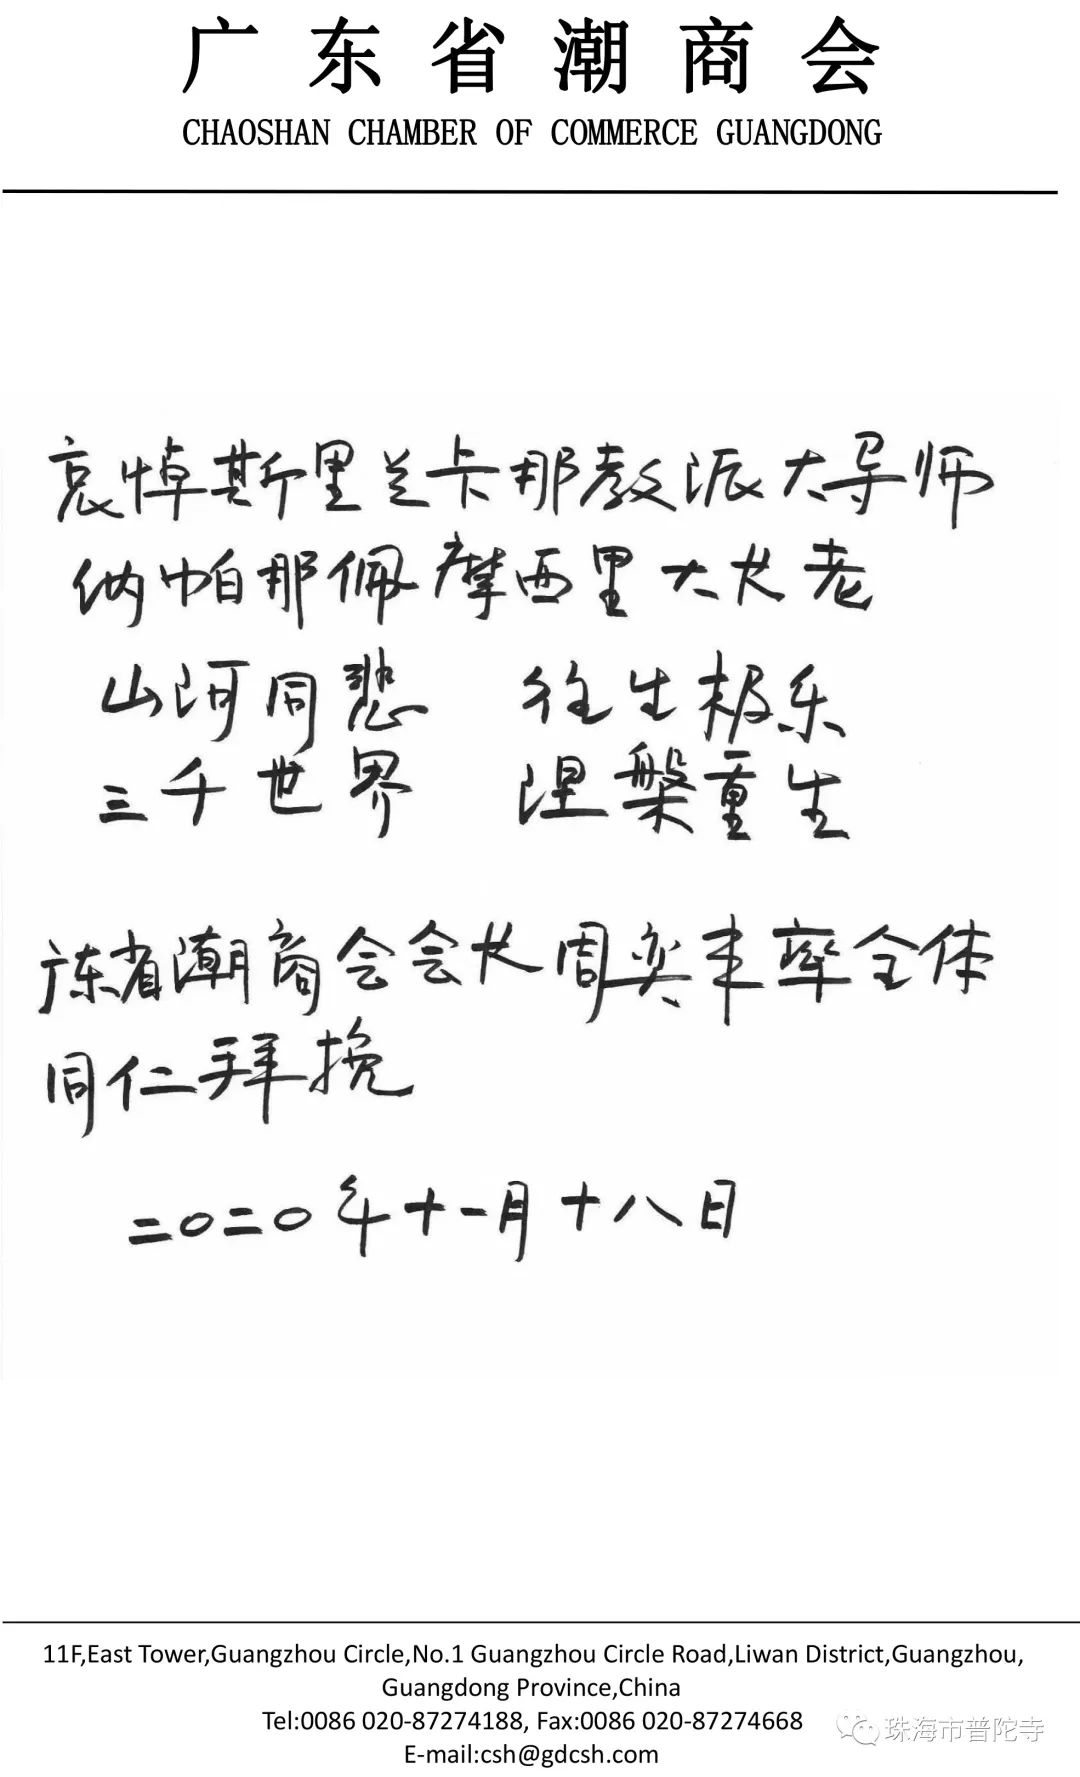 广东省潮商会
CHAOSHAN CHAMBER OF COMMERCE GUANGDONG
哀悼斯里兰卡那教派大导师
纳帕那佩摩西里大长老
山河同悲 往生极乐
三千世界 涅槃重生
广东省潮商会会长周奕丰率全体
同仁拜挽
二〇二〇年十一月十八日
11F,East Tower,Guangzhou Circle,No.1 Guangzhou Circle Road,Liwan District,Guangzhou,
Guangdong Province,China
Tel:0086 020-87274188, Fax:0086 020-87274668
E-mail:csh@gdcsh.com
珠海市普陀寺